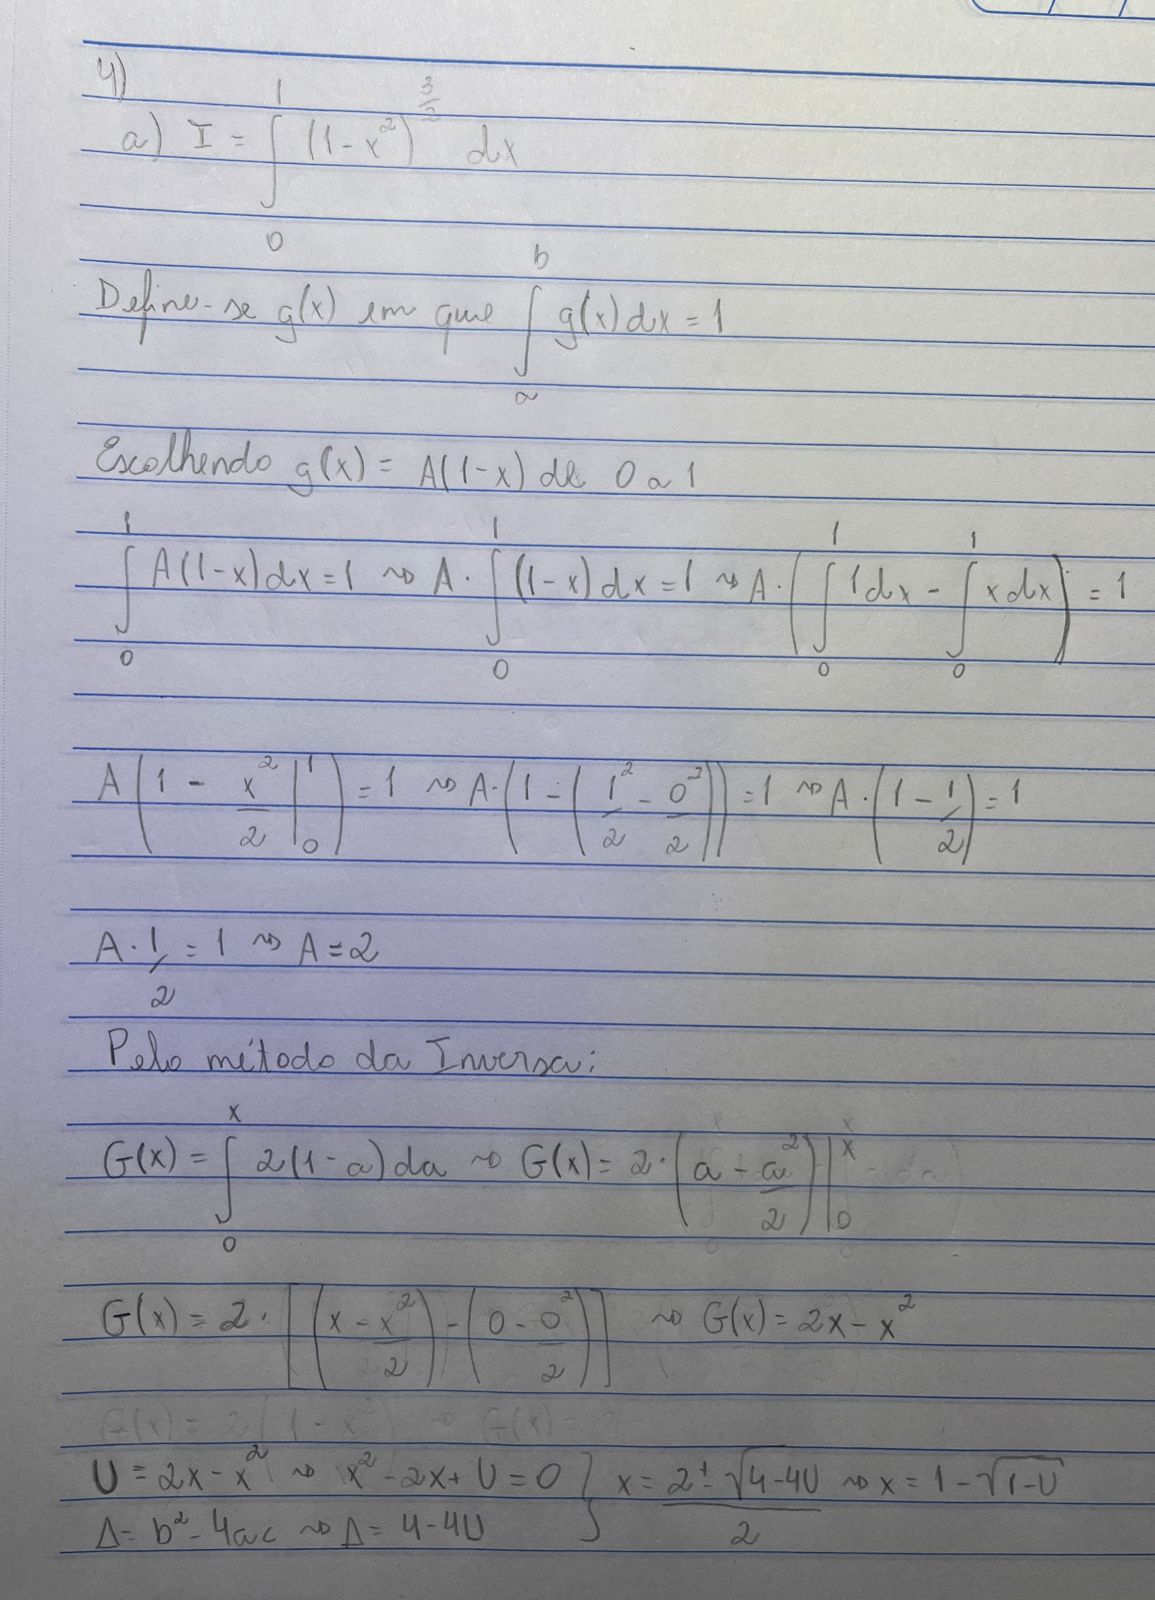 4)
a) I = ∫₀¹ (1-x²)^(3/2) dx
Define-se g(x) em que ∫ₐᵇ g(x)dx = 1
Escolhendo g(x) = A(1-x) de 0 a 1
∫₀¹ A(1-x)dx = 1 ⇝ A · ∫₀¹ (1-x)dx = 1 ⇝ A · (∫₀¹ 1dx - ∫₀¹ xdx) = 1
A(1 - x²/2 |₀¹) = 1 ⇝ A·(1-(1²/2 - 0²/2)) = 1 ⇝ A·(1 - 1/2) = 1
A · 1/2 = 1 ⇝ A = 2
Pelo método da Inversa:
G(x) = ∫₀ˣ 2(1-a)da ⇝ G(x) = 2·(a - a²/2)|₀ˣ
G(x) = 2·[(x - x²/2) - (0 - 0²/2)] ⇝ G(x) = 2x - x²
U = 2x - x² ⇝ x² - 2x + U = 0 } x = (2 ± √(4-4U))/2 ⇝ x = 1 - √(1-U)
Δ = b² - 4ac ⇝ Δ = 4 - 4U